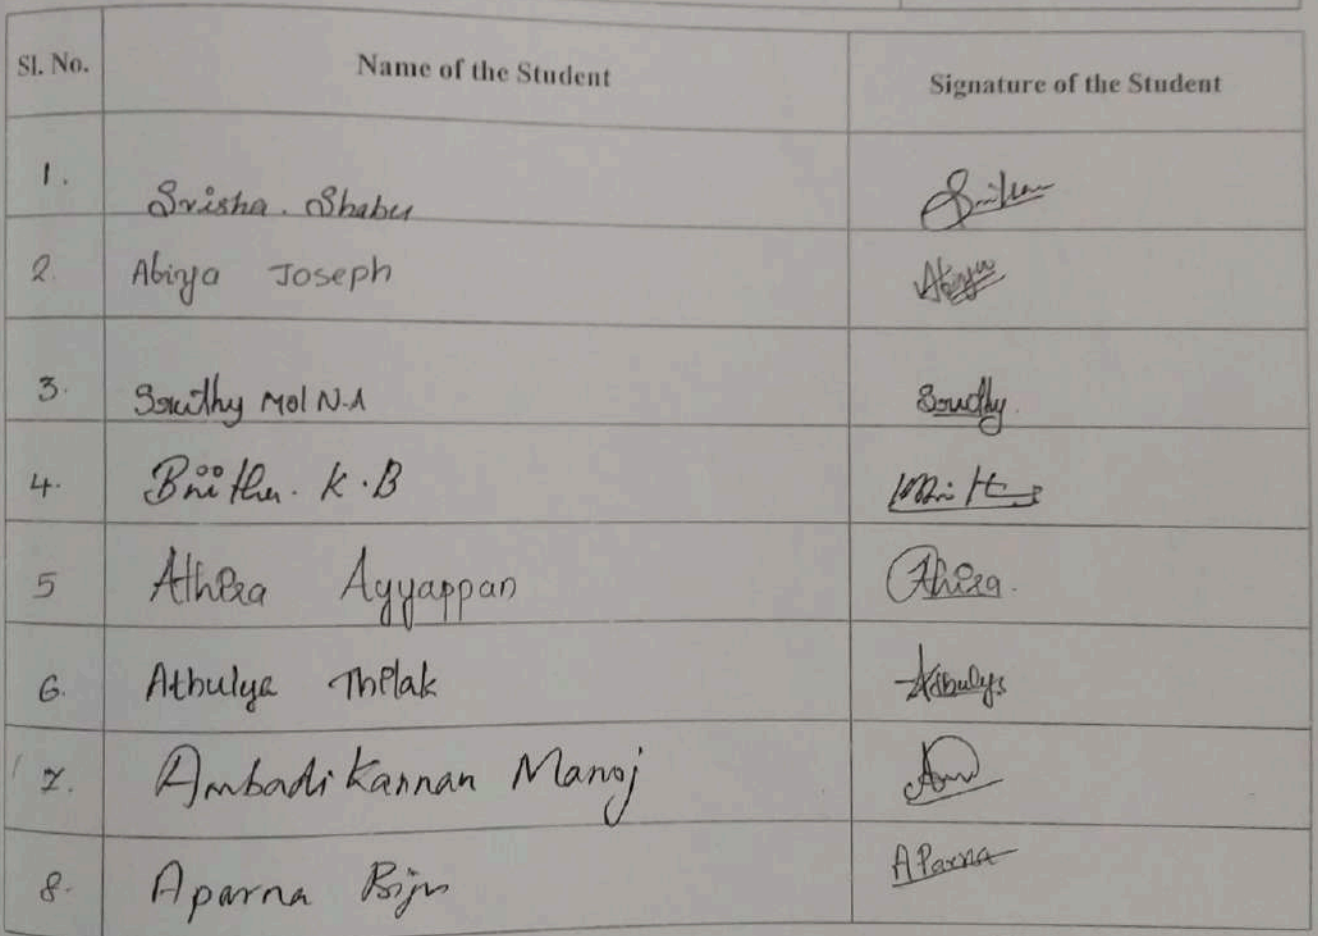 Sl. No. Name of the Student Signature of the Student
1. Srisha. Shabu
2. Abiya Joseph Abiya
3. Sruthy Mol N.A Sruthy
4. K.B
5 Athira Ayyappan Athira.
6. Athulya Thilak Athulya
7. Ambadi Kannan Manoj
8. Aparna Biju Aparna